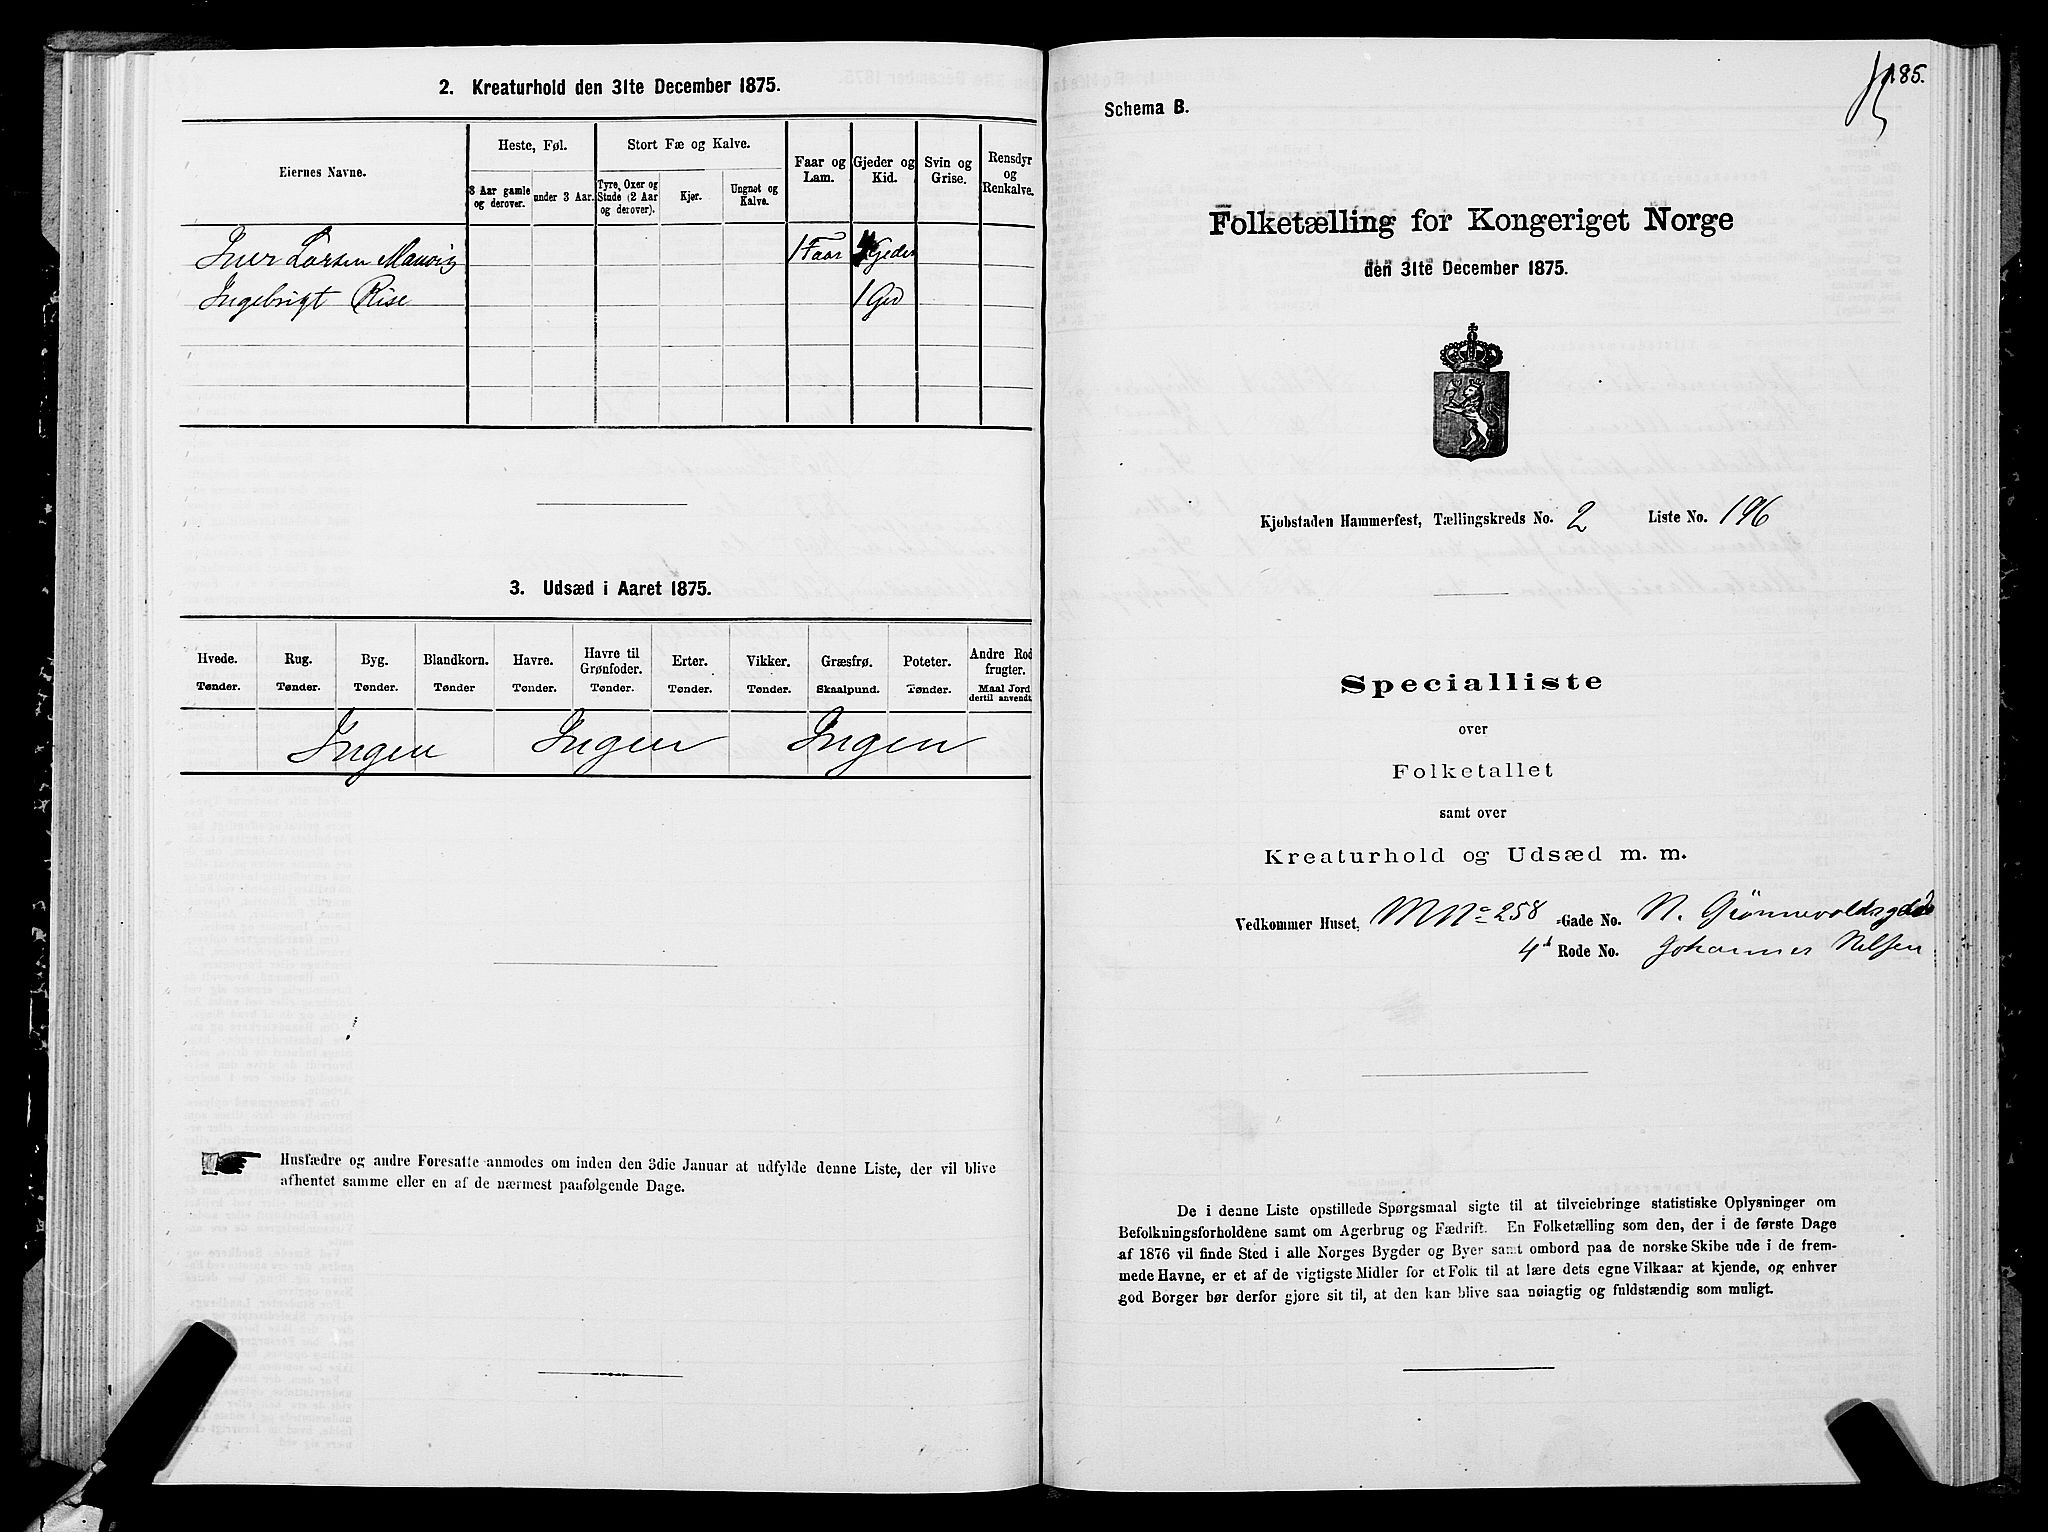 2. Kreaturhold den 31te December 1875.
Eiernes Navne.
Heste, Føl.
3 Aar gamle og derover.
under 3 Aar.
Stort Fæ og Kalve.
Tyre, Oxer og Stude (2 Aar og derover).
Kjør.
Ungnøt og Kalve.
Faar og Lam.
Gjeder og Kid.
Svin og Grise.
Rensdyr og Renkalve.
Iver Larsen 1 Faar 4 Geder
Ingebrigt Rise 1 Ged
3. Udsæd i Aaret 1875.
Hvede. Rug. Byg. Blandkorn. Havre. Havre til Grønfoder. Erter. Vikker. Græsfrø. Poteter. Andre Rodfrugter.
Tønder. Tønder. Tønder. Tønder Tønder. Tønder. Tønder. Tønder. Skaalpund. Tønder. Maal Jord dertil anvendt.
Ingen Ingen Ingen
Husfædre og andre Foresatte anmodes om inden den 3die Januar at udfylde denne Liste, der vil blive
afhentet samme eller en af de nærmest paafølgende Dage.
185.
Schema B.
Folketælling for Kongeriget Norge
den 31te December 1875.
Kjøbstaden Hammerfest, Tællingskreds No. 2 Liste No. 196
Specialliste
over
Folketallet
samt over
Kreaturhold og Udsæd m. m.
Vedkommer Huset, MNo 258 -Gade No. N. Grønnevoldsgade
4d Rode No. Johannes Nilsen
De i denne Liste opstillede Spørgsmaal sigte til at tilveiebringe statistiske Oplysninger om
Befolkningsforholdene samt om Agerbrug og Fædrift. En Folketælling som den, der i de første Dage
af 1876 vil finde Sted i alle Norges Bygder og Byer samt ombord paa de norske Skibe ude i de frem-
mede Havne, er et af de vigtigste Midler for et Folk til at lære dets egne Vilkaar at kjende, og enhver
god Borger bør derfor gjøre sit til, at den kan blive saa nøiagtig og fuldstændig som muligt.